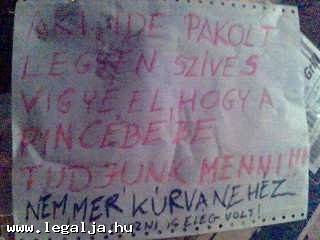 AKI IDE PAKOLT
LEGYEN SZÍVES
VIGYE EL, HOGY A
PINCÉBE BE
TUDJUNK MENNI!!!
NEM MER KÚRVA NEHÉZ
IS ELÉG VOLT!
www.legalja.hu